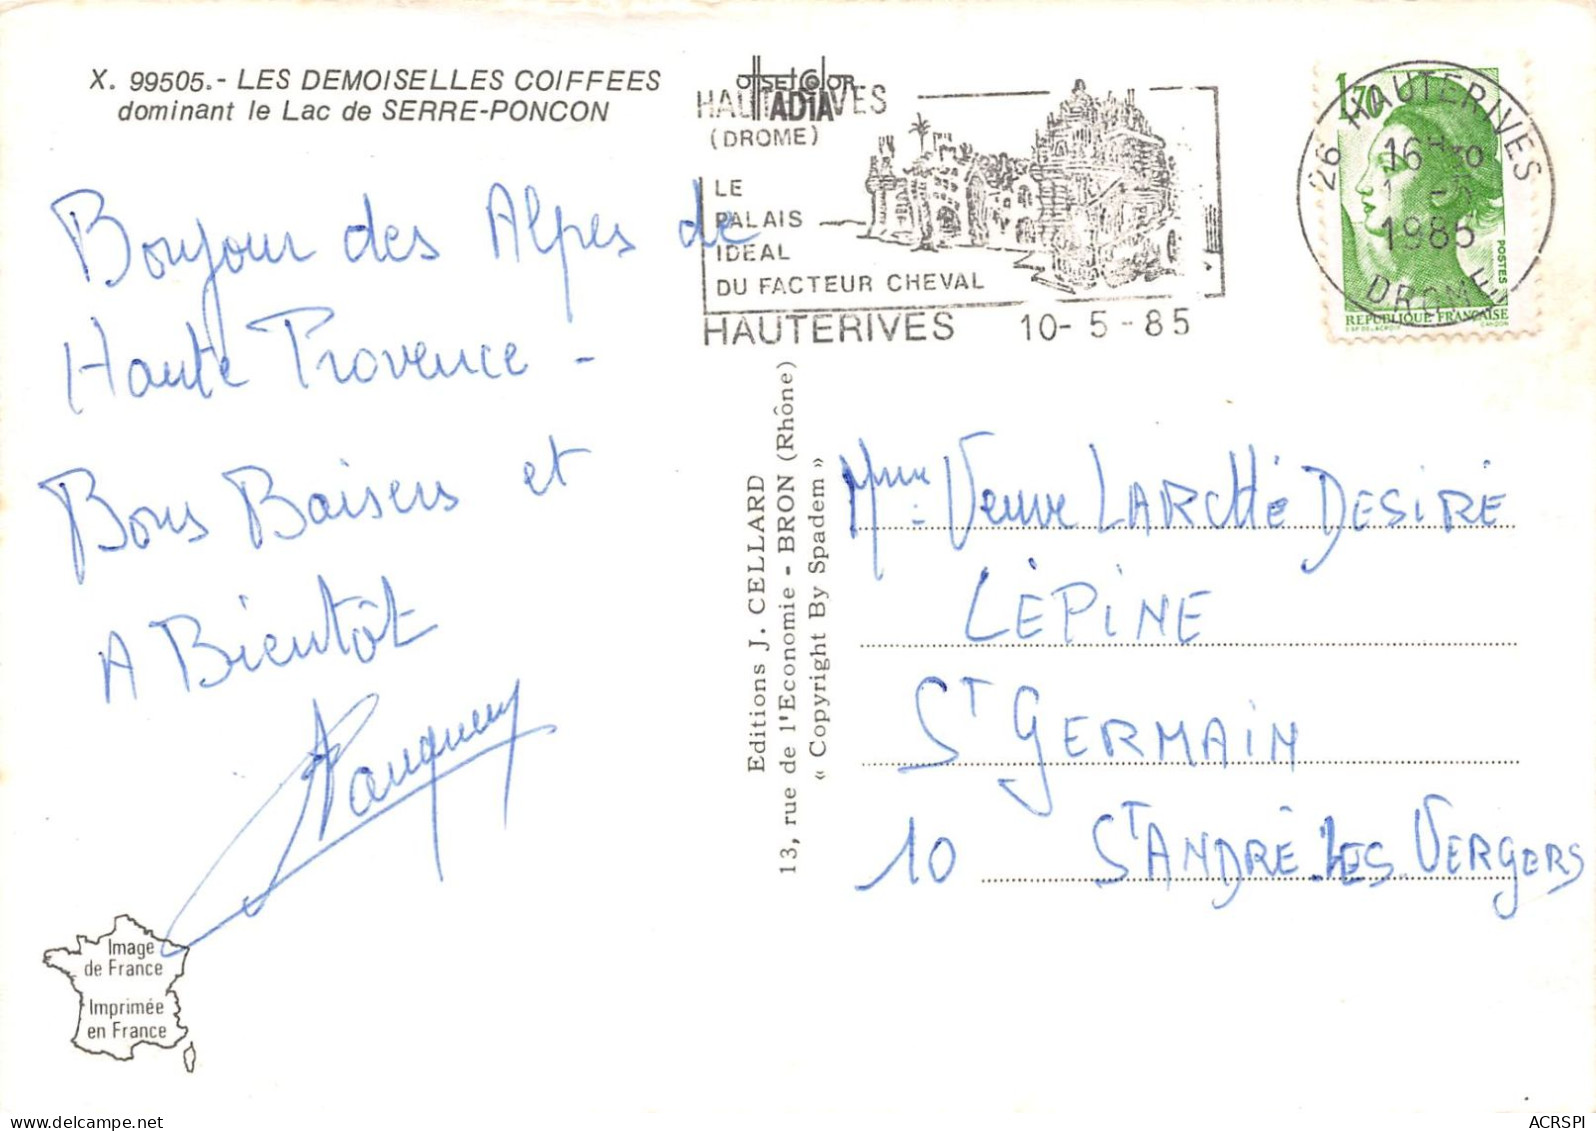 X. 99505.- LES DEMOISELLES COIFFEES
dominant le Lac de SERRE-PONCON
Bonjour des Alpes de
Haute Provence -
Bons Baisers et
A Bientôt
Image
de France
Imprimée
en France
offset color
ADIA
HAUTERIVES
(DROME)
LE
PALAIS
IDEAL
DU FACTEUR CHEVAL
HAUTERIVES 10-5-85
26 HAUTERIVES
16H30
1985
DROME
1,70
POSTES
REPUBLIQUE FRANÇAISE
Editions J. CELLARD
13, rue de l'Economie - BRON (Rhône)
« Copyright By Spadem »
Mme Veuve LARCHÉ DESIRÉ
LÉPINE
ST GERMAIN
10 ST ANDRÉ LES VERGERS
ACRSPI